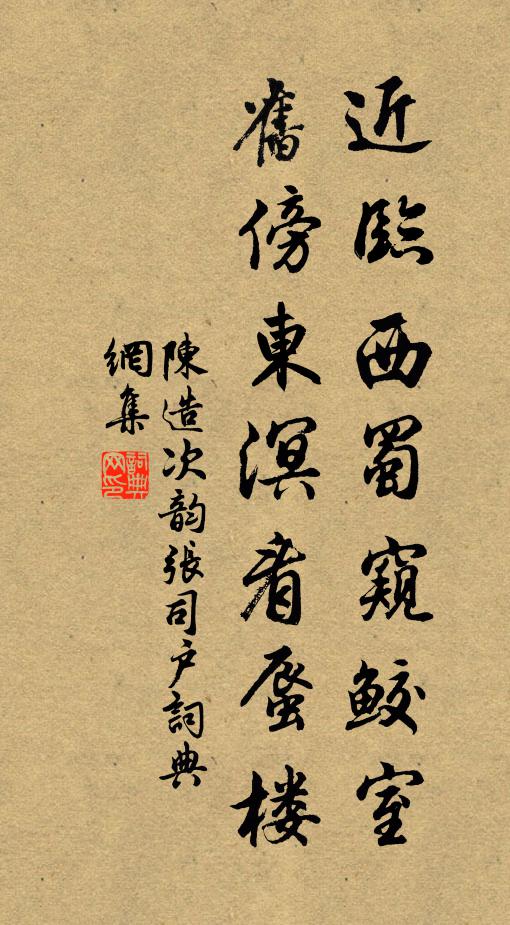 近臨西蜀窺鮫室
舊傍東溟看蜃楼
陳造次韵張司户詞典
網集
詞典網印